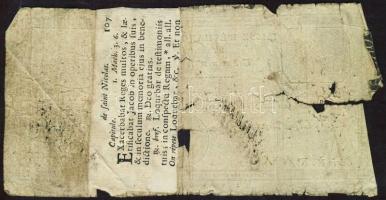 de saint Nicolas. 107
Capitule. 1. Mach. 3. 6.
EXacerbabat Reges multos, & læ-
tificabat Jacob in operibus suis,
& in seculum memoria ejus in bene-
dictione. ℟. Deo gratias.
℟. bref. Loquebar de testimoniis
tuis; in conspectu Regum, * all. all.
On répete Loquebar, &c. ℣. Et non